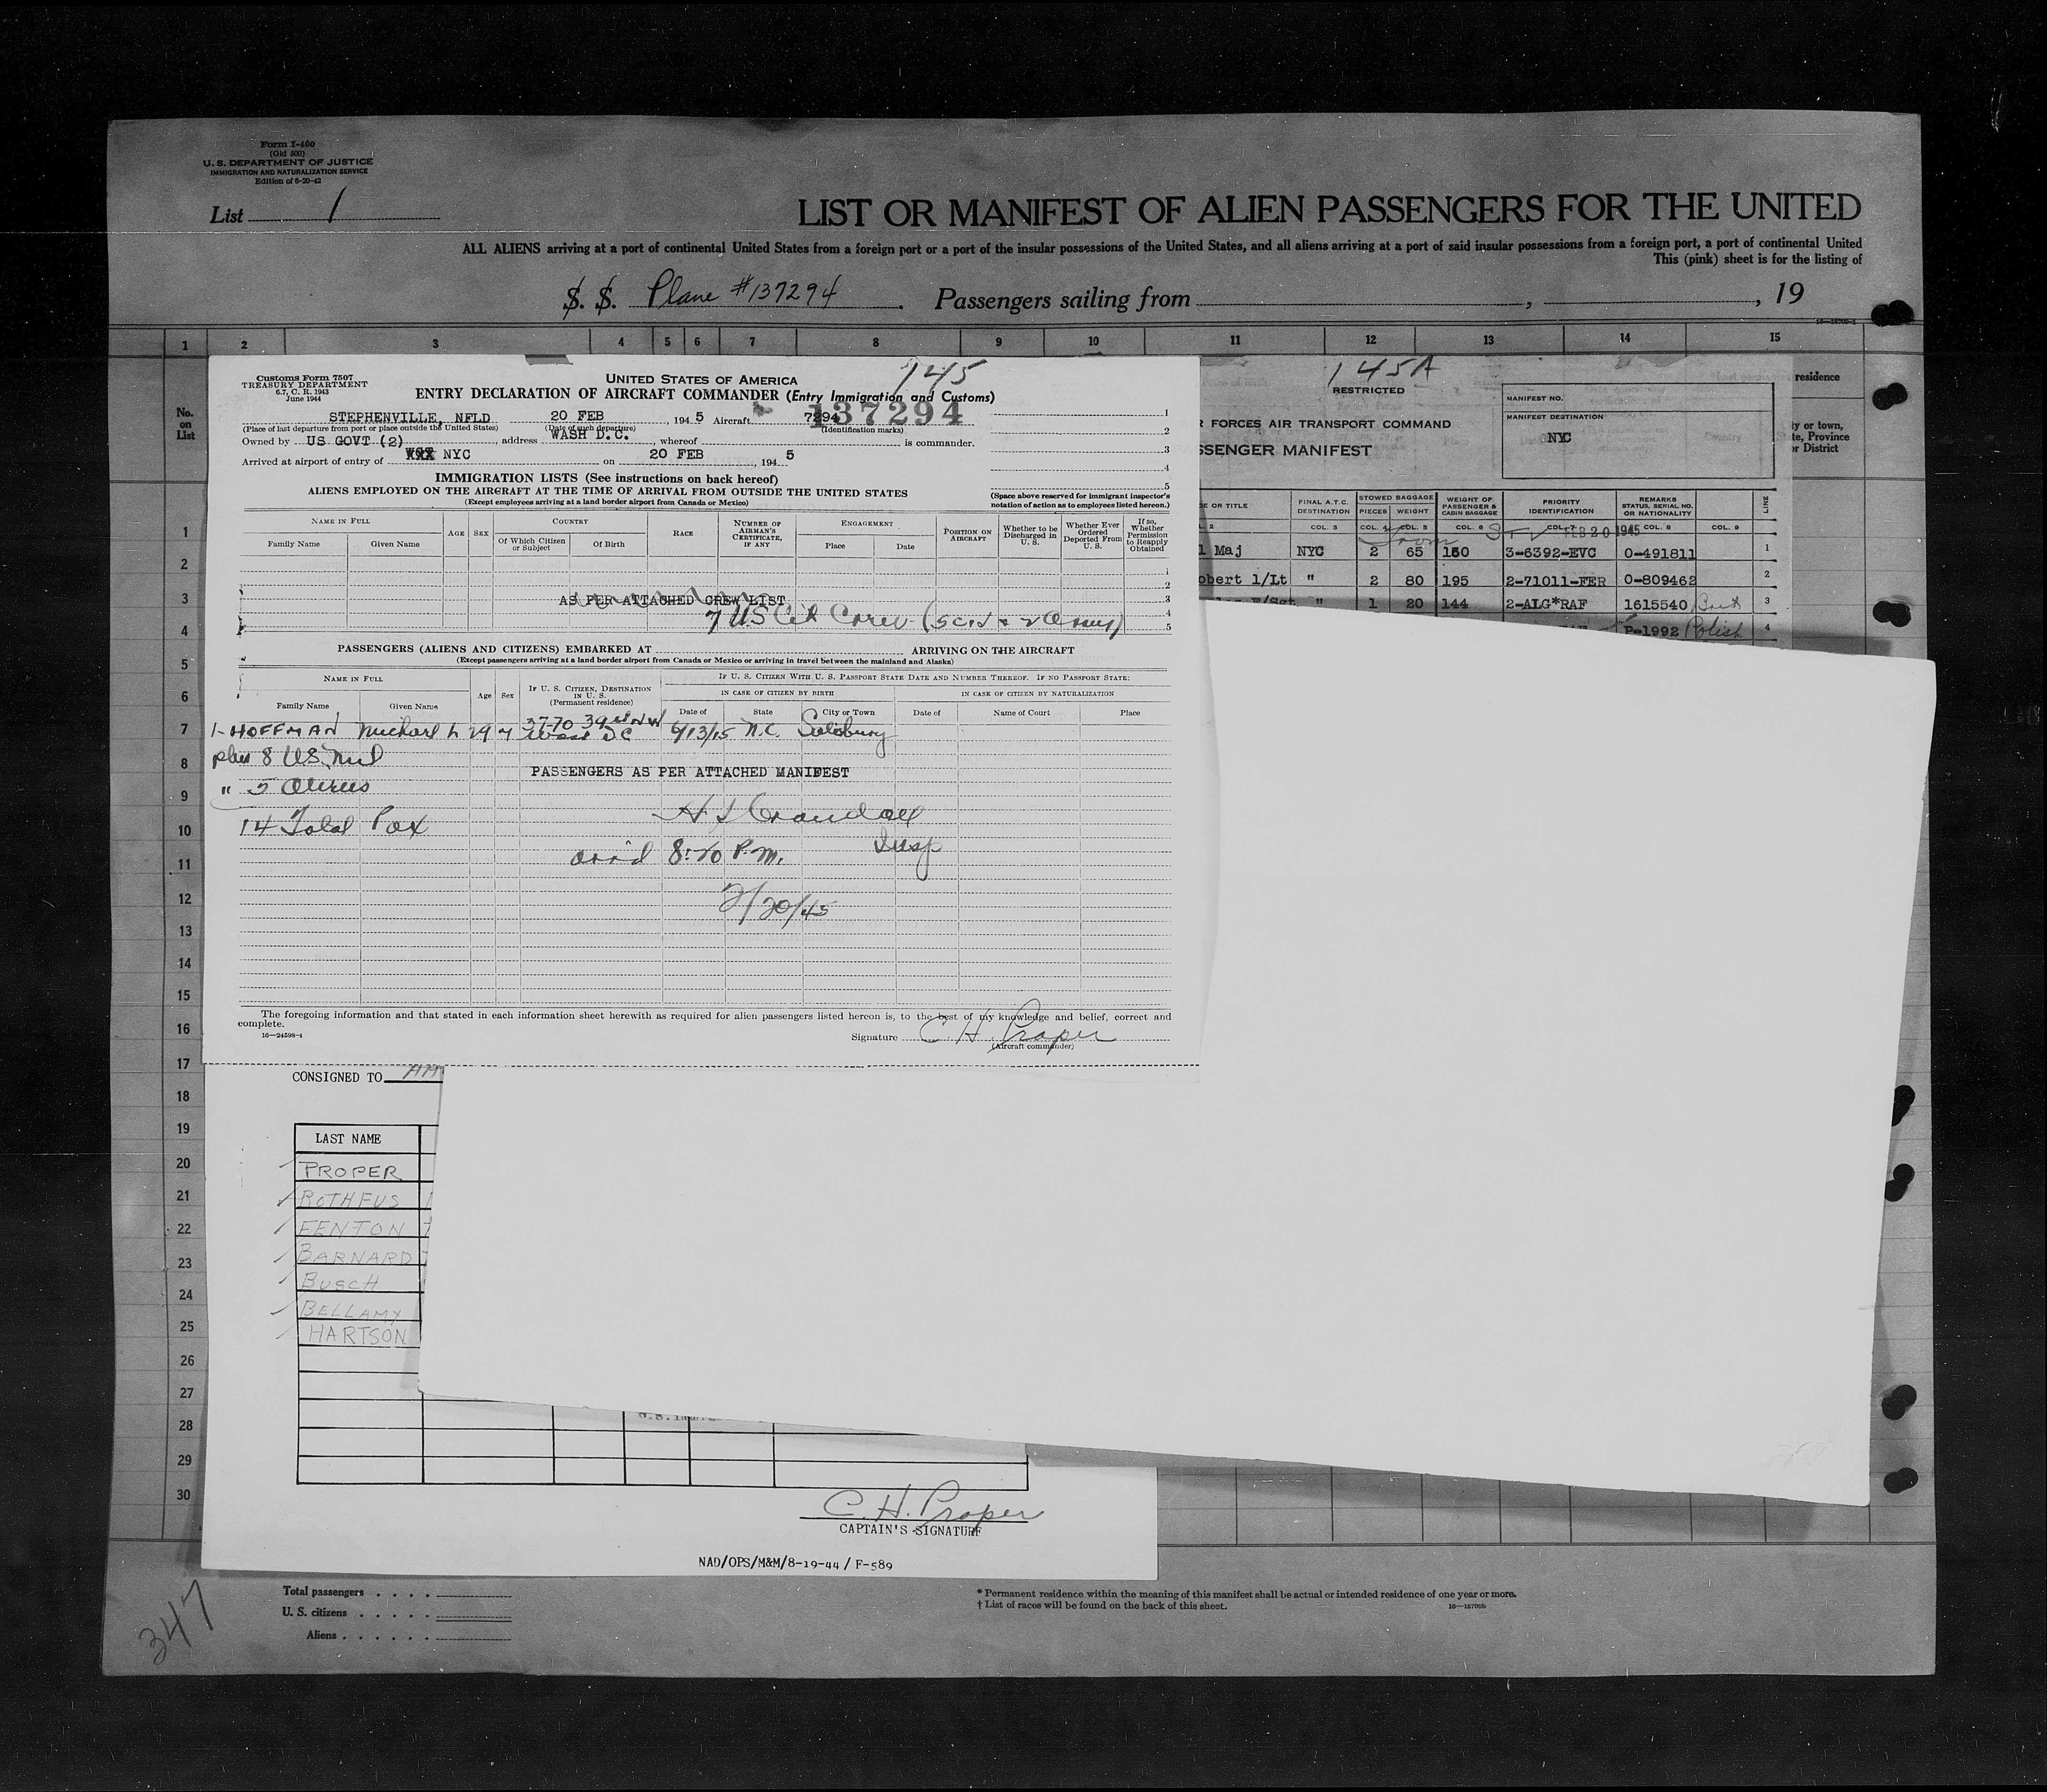 Form I-400
(Old 500)
U. S. DEPARTMENT OF JUSTICE
IMMIGRATION AND NATURALIZATION SERVICE
Edition of 6-20-42
List 1
LIST OR MANIFEST OF ALIEN PASSENGERS FOR THE UNITED
ALL ALIENS arriving at a port of continental United States from a foreign port or a port of the insular possessions of the United States, and all aliens arriving at a port of said insular possessions from a foreign port, a port of continental United
This (pink) sheet is for the listing of
S. S. Plane #137294 . Passengers sailing from , , 19
1 2 3 4 5 6 7 8 9 10 11 12 13 14 15
No. on List
residence
ty or town,
te, Province
or District
Customs Form 7507
TREASURY DEPARTMENT
6.7, C. R. 1943
June 1944
UNITED STATES OF AMERICA
145
ENTRY DECLARATION OF AIRCRAFT COMMANDER (Entry Immigration and Customs)
137294
STEPHENVILLE, NFLD 20 FEB , 194 5 Aircraft 7294
(Place of last departure from port or place outside the United States) (Date of such departure) (Identification marks)
Owned by US GOVT (2) address WASH D.C. , whereof is commander.
Arrived at airport of entry of NYC on 20 FEB , 194 5
1
2
3
4
5
IMMIGRATION LISTS (See instructions on back hereof)
ALIENS EMPLOYED ON THE AIRCRAFT AT THE TIME OF ARRIVAL FROM OUTSIDE THE UNITED STATES
(Except employees arriving at a land border airport from Canada or Mexico)
(Space above reserved for immigrant inspector's notation of action as to employees listed hereon.)
NAME IN FULL AGE SEX COUNTRY RACE NUMBER OF AIRMAN'S CERTIFICATE, IF ANY ENGAGEMENT POSITION ON AIRCRAFT Whether to be Discharged in U. S. Whether Ever Ordered Deported From U. S. If so, Whether Permission to Reapply Obtained
Family Name Given Name Of Which Citizen or Subject Of Birth Place Date
1
2
AS PER ATTACHED CREW LIST 3
7 US Cit Crew (5 civ + 2 Army) 4
5
PASSENGERS (ALIENS AND CITIZENS) EMBARKED AT ARRIVING ON THE AIRCRAFT
(Except passengers arriving at a land border airport from Canada or Mexico or arriving in travel between the mainland and Alaska)
NAME IN FULL Age Sex IF U. S. CITIZEN, DESTINATION IN U. S. (Permanent residence) IF U. S. CITIZEN WITH U. S. PASSPORT STATE DATE AND NUMBER THEREOF. IF NO PASSPORT STATE:
IN CASE OF CITIZEN BY BIRTH IN CASE OF CITIZEN BY NATURALIZATION
Family Name Given Name Date of State City or Town Date of Name of Court Place
1- HOFFMAN Michael L 29 M 3770 39th St NW Wash DC 6/13/15 N.C. Salisbury
plus 8 US Mil
PASSENGERS AS PER ATTACHED MANIFEST
" 5 Aliens
14 Total Pax
H J Crandall
Insp
arr'd 8:20 P.M.
2/20/45
The foregoing information and that stated in each information sheet herewith as required for alien passengers listed hereon is, to the best of my knowledge and belief, correct and complete.
16—24598-4
Signature C. H. Proper
(Aircraft commander)
145A
RESTRICTED
FORCES AIR TRANSPORT COMMAND
SENGER MANIFEST
MANIFEST NO.
MANIFEST DESTINATION
NYC
OR TITLE FINAL A.T.C. DESTINATION STOWED BAGGAGE PIECES WEIGHT WEIGHT OF PASSENGER & CABIN BAGGAGE PRIORITY IDENTIFICATION REMARKS STATUS, SERIAL NO. OR NATIONALITY LINE
2 COL. 3 COL. 4 COL. 5 COL. 6 COL. 7 COL. 8 COL. 9
From STV FEB 20 1945
Maj NYC 2 65 160 3-6392-EVC 0-491811 1
obert 1/Lt " 2 80 195 2-71011-FER 0-809462 2
" 1 20 144 2-ALG*RAF 1615540 Brit 3
P-1992 Polish 4
1
2
3
4
5
6
7
8
9
10
11
12
13
14
15
16
17
18
19
20
21
22
23
24
25
26
27
28
29
30
CONSIGNED TO
LAST NAME
PROPER
ROTHFUS
FENTON
BARNARD
BUSCH
BELLAMY
HARTSON
C. H. Proper
CAPTAIN'S SIGNATURE
NAD/OPS/M&M/8-19-44 / F-589
Total passengers
U. S. citizens
Aliens
* Permanent residence within the meaning of this manifest shall be actual or intended residence of one year or more.
† List of races will be found on the back of this sheet.
347